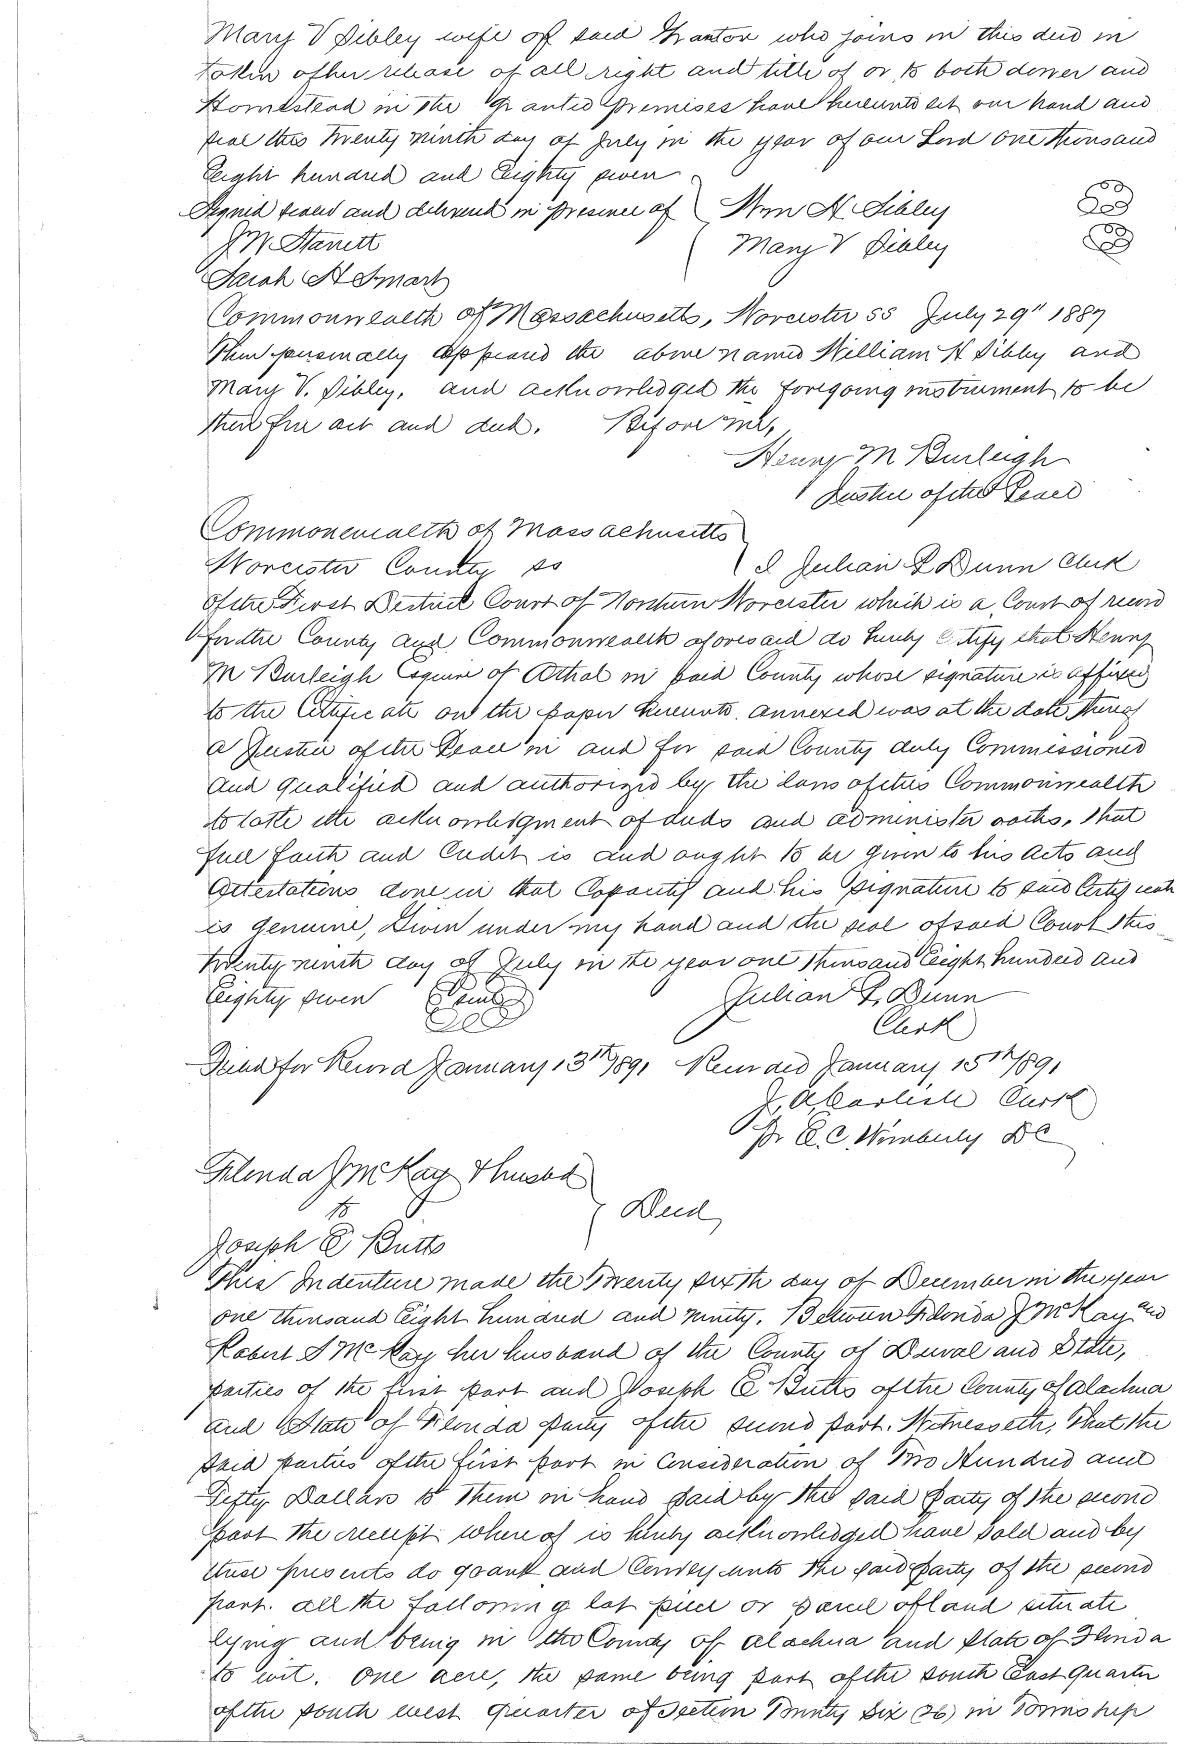 Mary V Sibley wife of said Grantor who joins in this deed in
token of her release of all right and title of or to both dower and
Homestead in the Granted premises have hereunto set our hand and
seal this Twenty ninth day of July in the year of our Lord one thousand
Eight hundred and Eighty seven
Signed sealed and delivered in presence of Wm H. Sibley
J. W. Starrett Mary V Sibley
Sarah H Smart
Commonwealth of Massachusetts, Worcester SS July 29" 1887
Then personally appeared the above named William H Sibley and
Mary V. Sibley, and acknowledged the foregoing instrument to be
their free act and deed. Before me,
Henry M Burleigh
Justice of the Peace
Commonwealth of Massachusetts
Worcester County ss I Julian L Dunn Clerk
of the First District Court of Northern Worcester which is a Court of record
for the County and Commonwealth aforesaid do hereby certify that Henry
M Burleigh Esquire of Athol in said County whose signature is affixed
to the Certificate on the paper hereunto annexed was at the date thereof
a Justice of the Peace in and for said County duly Commissioned
and qualified and authorized by the laws of this Commonwealth
to take the acknowledgment of deeds and administer oaths, that
full faith and Credit is and ought to be given to his acts and
Attestations done in that Capacity and his signature to said Certificate
is genuine, Given under my hand and the seal of said Court this
twenty ninth day of July in the year one thousand Eight hundred and
Eighty seven Seal Julian L. Dunn
Clerk
Filed for Record January 13th 1891 Recorded January 15th 1891
J. A. Carlisle Clerk
Pr E. C. Wimberly DC
Florida J McKay & husbd
to Deed,
Joseph E Butts
This Indenture made the Twenty sixth day of December in the year
one thousand Eight hundred and ninety. Between Florida J McKay and
Robert S McKay her husband of the County of Duval and State,
parties of the first part and Joseph E Butts of the County of Alachua
and State of Florida party of the second part. Witnesseth, That the
said parties of the first part in consideration of Two Hundred and
Fifty Dollars to them in hand paid by the said party of the second
part the receipt where of is hereby acknowledged have sold and by
these presents do grant and Convey unto the said party of the second
part. all the following lot piece or parcel of land situate
lying and being in the County of Alachua and State of Florida
to wit. One acre, the same being part of the south East quarter
of the south west quarter of Section Twenty Six (26) in Township